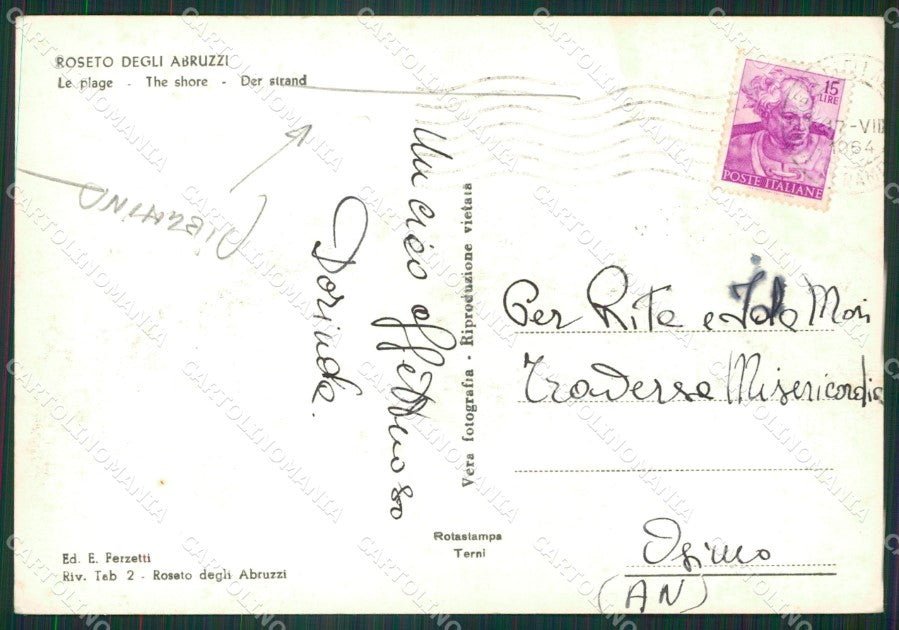 ROSETO DEGLI ABRUZZI
Le plage - The shore - Der strand
Un ciao affettuoso
Dorinda.
Vera fotografia - Riproduzione vietata
Rotastampa
Terni
Ed. E. Perzetti
Riv. Tab 2 - Roseto degli Abruzzi
15
LIRE
POSTE ITALIANE
17-VIII
1964
Per Rita e Ida Mori
Traversa Misericordia
Osimo
(AN)
CARTOLINOMANIA